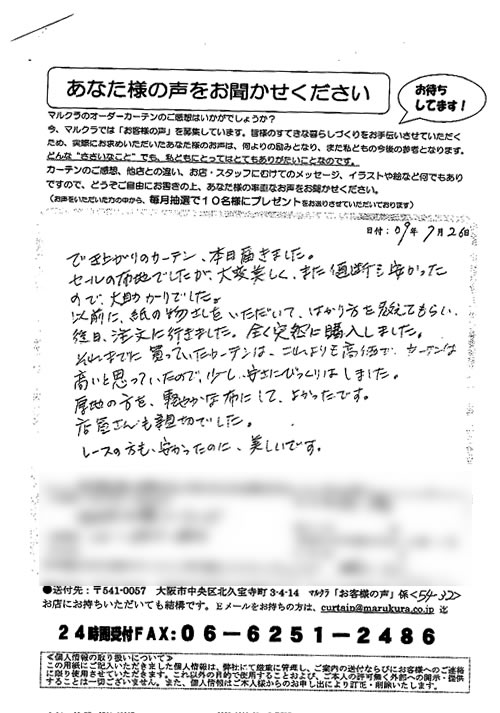 あなた様の声をお聞かせください
お待ち
してます！
マルクラのオーダーカーテンのご感想はいかがでしょうか？
今、マルクラでは「お客様の声」を募集しています。皆様のすてきな暮らしづくりをお手伝いさせていただく
ため、実際にお求めいただいたあなた様のお声は、何よりの励みとなり、また私どもの今後の参考となります。
どんな“ささいなこと”でも、私どもにとってはとてもありがたいことなのです。
カーテンのご感想、他店との違い、お店・スタッフにむけてのメッセージ、イラストや絵など何でもあり
ですので、どうぞご自由にお書きの上、あなた様の率直なお声をお聞かせください。
（お声をいただいた方の中から、毎月抽選で１０名様にプレゼントをお送りさせていただいております）
日付：09年 7月26日
でき上がりのカーテン、本日届きました。
セールの布地でしたが、大変美しく、また値断も安かった
ので、大助かりでした。
以前に、紙の物さしをいただいて、はかり方を教えてもらい、
後日、注文に行きました。全く突然に購入しました。
それまでに買っていたカーテンは、これよりも高価で、カーテンは
高いと思っていたので、少し、安さにびっくりはしました。
厚地の方も、軽やかな布にして、よかったです。
店屋さんも親切でした。
レースの方も、安かったのに、美しいです。
●送付先：〒541-0057 大阪市中央区北久宝寺町3-4-14 マルクラ「お客様の声」係<54-32>
お店にお持ちいただいても結構です。Ｅメールをお持ちの方は、curtain@marukura.co.jp 迄
２４時間受付FAX：０６－６２５１－２４８６
＜個人情報の取り扱いについて＞
この用紙にご記入いただきました個人情報は、弊社にて厳重に管理し、ご案内の送付ならびにお客様へのご連絡
に限り使用させていただきます。これ以外の目的で使用することおよび、ご本人の許可無く外部への開示・提供
することは一切ございません。また、個人情報はご本人様からのお申し出により訂正・削除いたします。